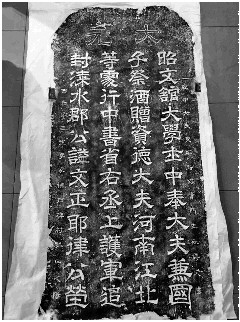 大元
昭文館大學士中奉大夫兼國
子祭酒贈資德大夫河南江北
等處行中書省右丞上護軍追
封漆水郡公諡文正耶律公塋